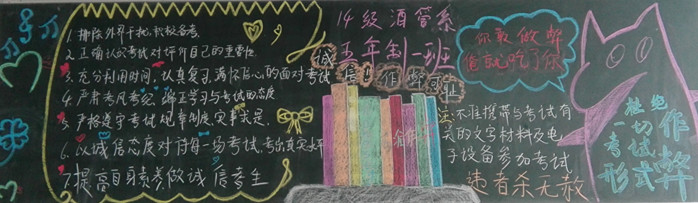 1. 排除外界干扰,积极备考.
2.正确认识考试对评价自己的重要性.
3.充分利用时间,认真复习,满怀信心的面对考试
4.严肃考风考纪,端正学习与考试的态度.
5.严格遵守考试规章制度,实事求是.
6.以诚信态度对待每一场考试,考出真实水平
7.提高自身素养做诚信考生
14级酒管系
五年制一班
诚信 作弊可耻
你敢做弊
信我就吃了你
注:不准携带与考试有
关的文字材料及电
子设备参加考试
违者杀无赦
杜绝
一切
考试
形式
作弊